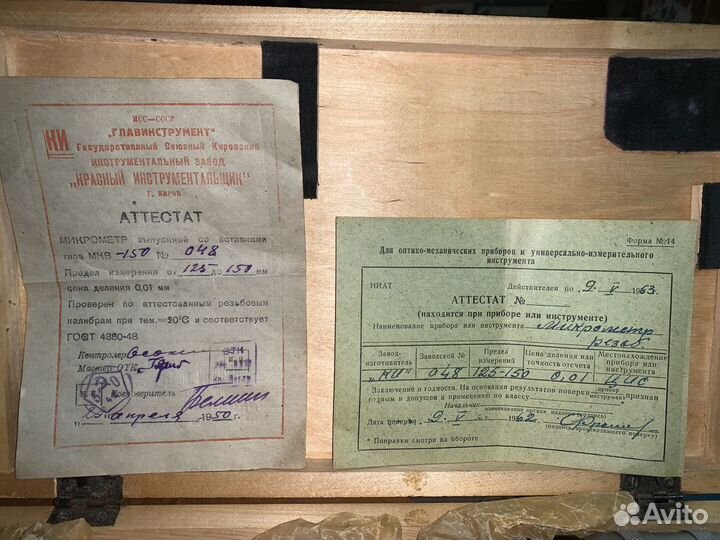 КИ
МСС—СССР
„ГЛАВИНСТРУМЕНТ"
Государственный Союзный Кировский
ИНСТРУМЕНТАЛЬНЫЙ ЗАВОД
„КРАСНЫЙ ИНСТРУМЕНТАЛЬЩИК"
Г. КИРОВ
АТТЕСТАТ
МИКРОМЕТР выпускной со вставками
типа МКВ -150 № 048
Предел измерения от 125 до 150 мм
цена деления 0,01 мм
Проверен по аттестованным резьбовым
калибрам при тем.=20°С и соответствует
ГОСТ 4380-48
Контролер
Мастер ОТК
Контроверитель
„25" апреля 1950 г.
Форма № 14
Для оптико-механических приборов и универсально-измерительного
инструмента
НИАТ Действителен по 9. V 1963.
АТТЕСТАТ №
(находится при приборе или инструменте)
Наименование прибора или инструмента Микрометр
резьб
Завод-изготовитель Заводской № Предел измерений Цена деления или точность отсчета Местонахождение прибора или инструмента
"КИ" 048 125-150 0,01 ЦИС
Заключение о годности. На основании результатов поверки прибор инструмент признан
годным и допущен к применению по классу
Начальник
наименование органа надзора (подпись)
Дата поверки 9. V 1962
(подпись производившего поверку)
* Поправки смотри на обороте
Avito